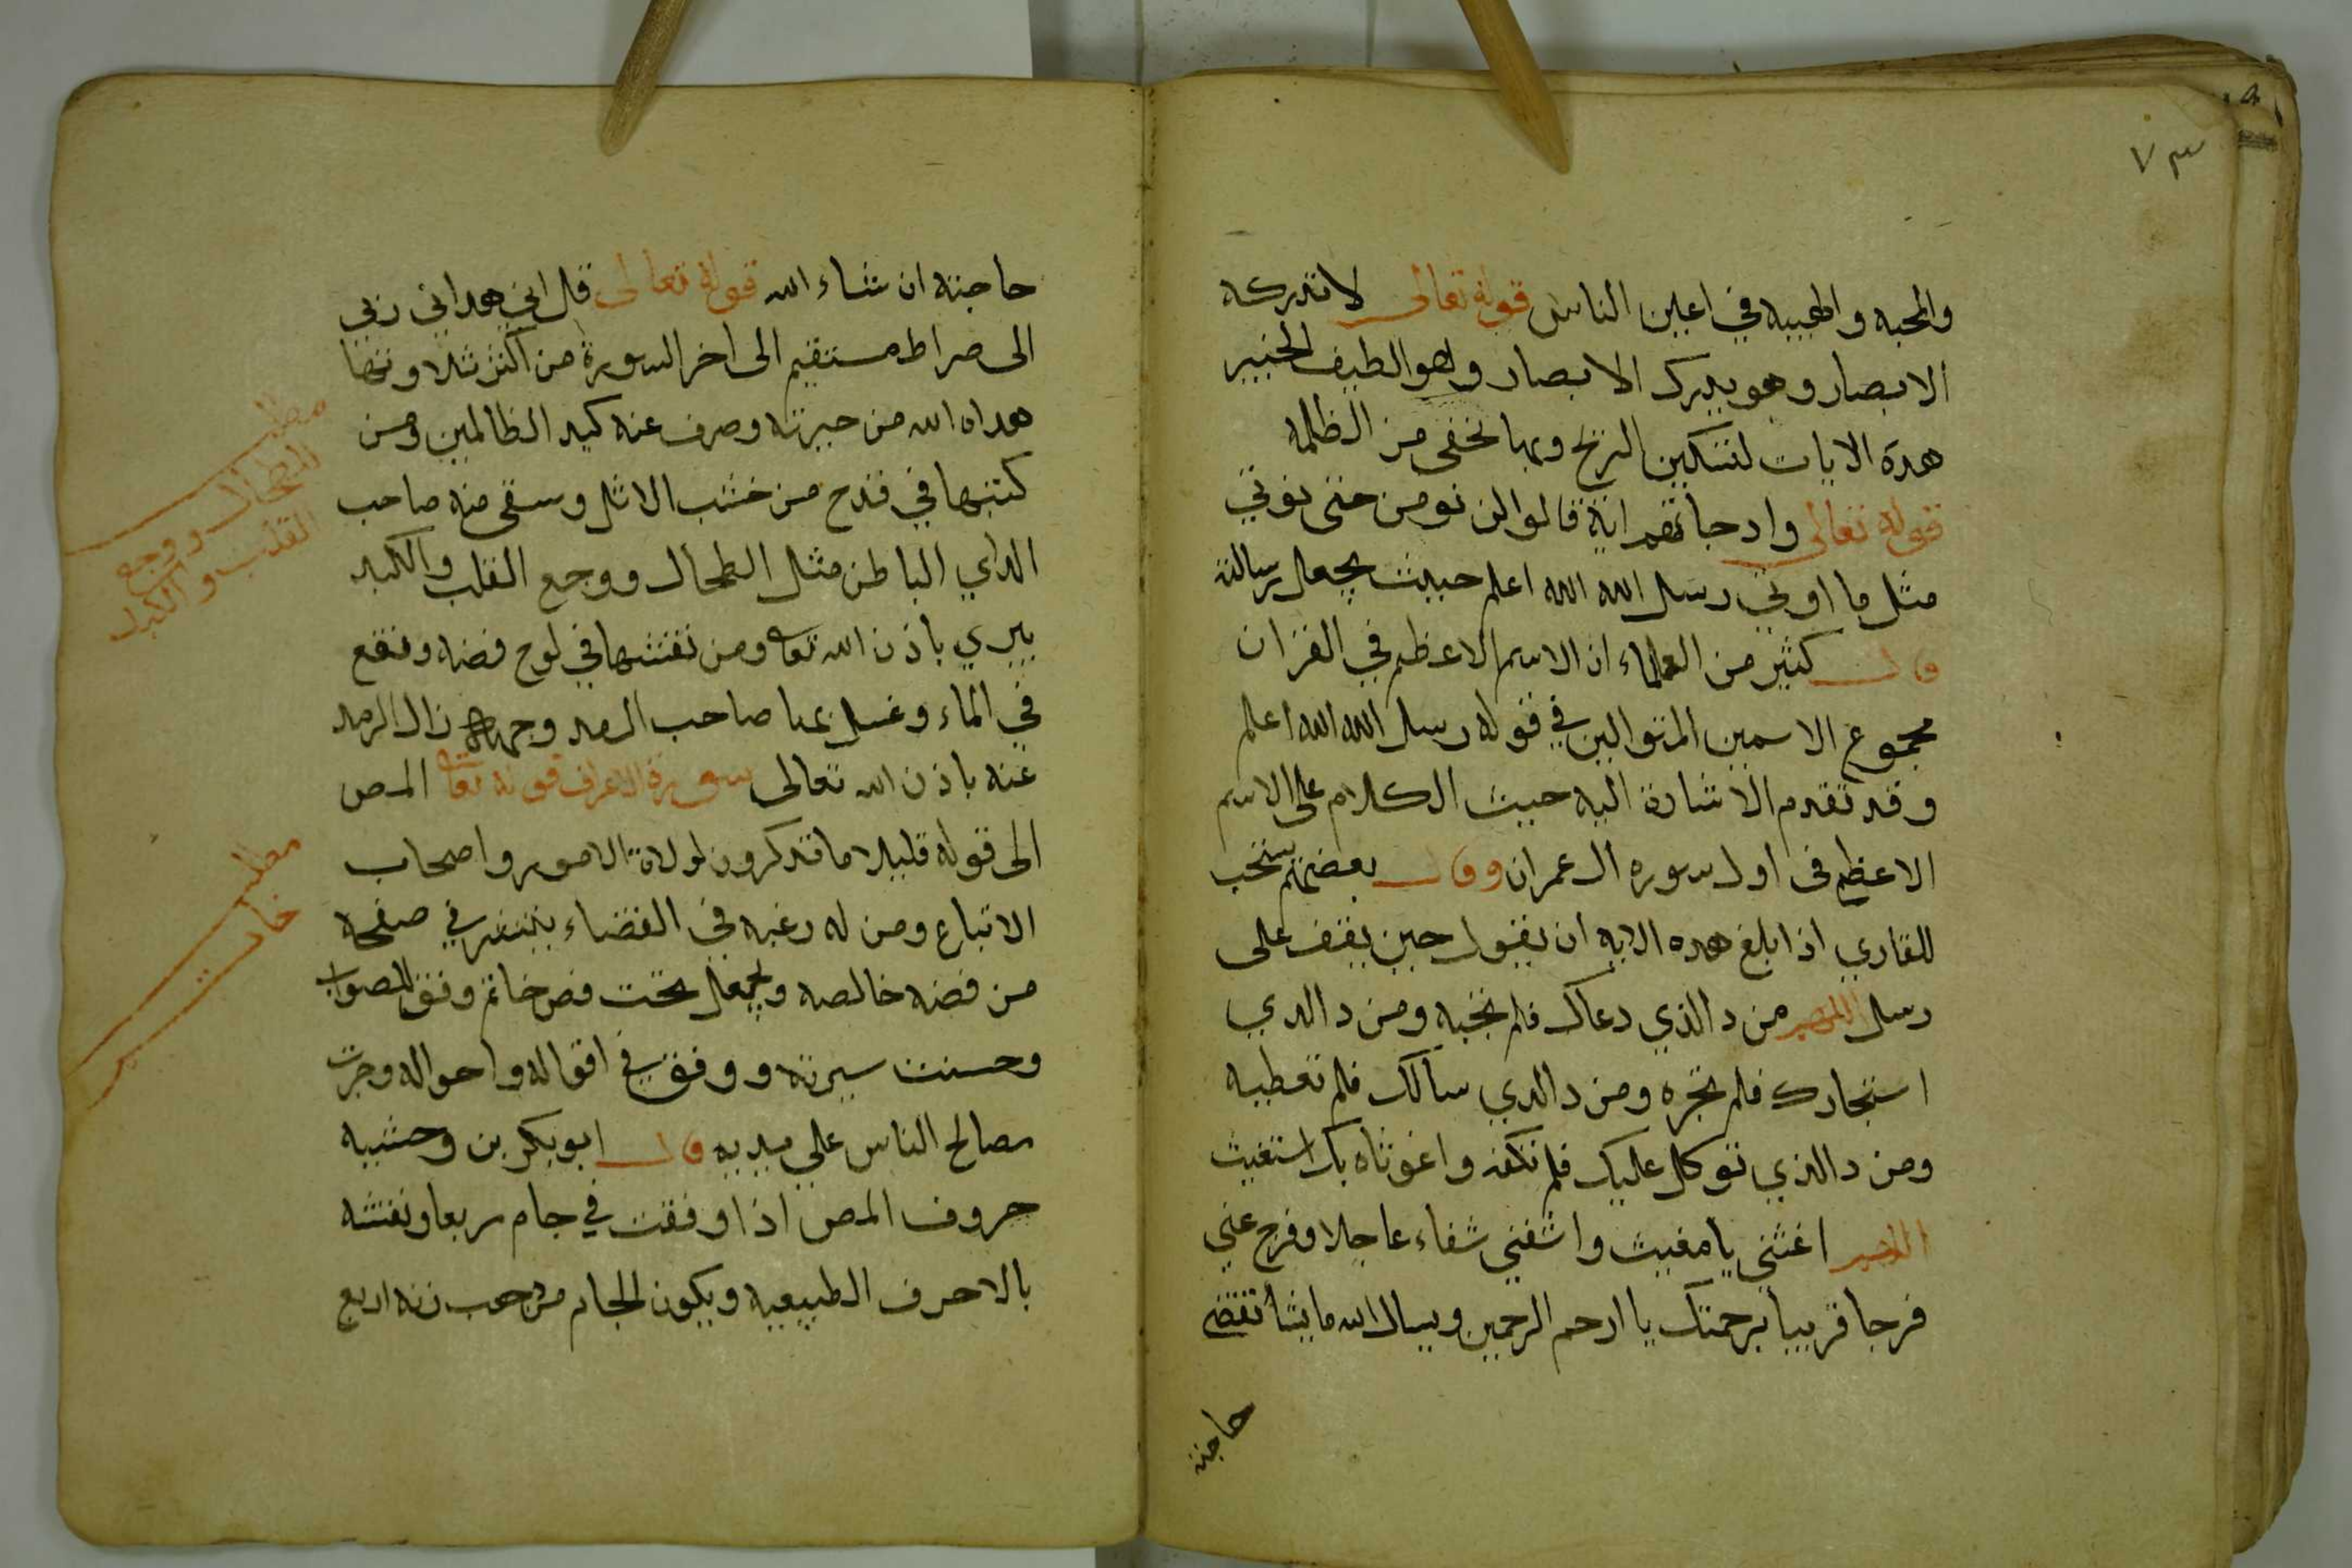 ٧٣
والمحبه والهيبه في اعين الناس قوله تعالى لا تدركه
الابصار وهو يدرك الابصار وهو الطيف الخبير
هده الايات لتسكين الريح وبها تخفى من الظلمه
قوله تعالى وادجاتهم اية قالوا لن نومن حتى نوتي
مثل ما اوتي رسل الله الله اعلم حيث يجعل رسالته
قال كثير من العلماء ان الاسم الاعظم في القران
مجموع الاسمين المتوالين في قوله رسل الله الله اعلم
وقد تقدم الاشارة اليه حيث الكلام على الاسم
الاعظم فى اول سوره ال عمران وقال بعضهم يستحب
للقاري اذا بلغ هده الايه ان يقول حين يقف على
رسل اللهم من د الذي دعاك فلم تجبه ومن د الدي
استجارك فلم تجره ومن د الدي سالك فلم تعطيه
ومن د الذي توكل عليك فلم تكفه واغوثاه بك استغيث
اللهم اغثني يا مغيث واشفني شفاء عاجلا وفرج عني
فرجا قريبا برحمتك يا ارحم الرحمين ويسال الله مايشا تقضى
حاجته
حاجته ان شاء الله قوله تعالى قل اني هداني ربي
الى صراط مستقيم الى اخر السورة من اكثر تلاوتها
هداه الله من حيرته وصرف عنه كيد الظالمين ومن
كتبها في قدح من خشب الاثل وسقى منه صاحب
الداي الباطن مثل الطحال ووجع القلب والكبد
يبري باذن الله تعا ومن نقشها في لوح فضه ونقع
في الماء وغسل بما صاحب الرمد وجهه زال الرمد
عنه باذن الله تعالى سورة الاعراف قوله تعا المص
الى قوله قليلا ما تدكرون لولاة الامور واصحاب
الاتباع ومن له رغبه في القضاء ينقش في صفحه
من فضه خالصه ويجعل تحت فص خاتم وفق للصواب
وحسنت سيرته ووفق في اقواله واحواله وجرت
مصالح الناس علي يديه قال ابو بكر بن وحشيه
حروف المص اذا وفقت في جام مربعا ونقشه
بالاحرف الطبيعيه ويكون الجام من دهب زنه اربع
مطلب
للطحال ووجع
القلب والكبد
مطلب
خاتم